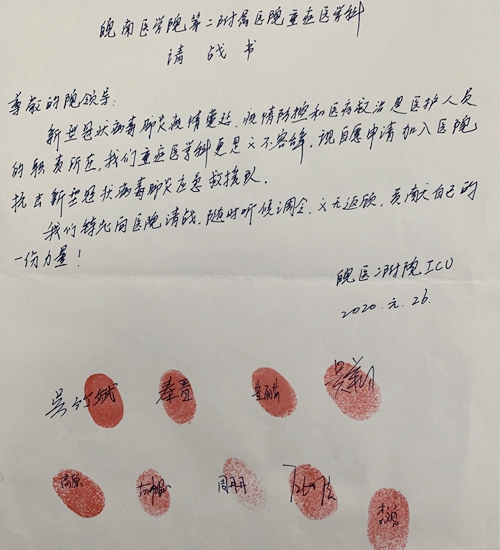 皖南医学院第二附属医院重症医学科
请战书
尊敬的院领导：
新型冠状病毒肺炎疫情蔓延，疫情防控和医疗救治是医护人员
的职责所在，我们重症医学科更是义不容辞，现自愿申请加入医院
抗击新型冠状病毒肺炎应急救援队。
我们特此向医院请战，随时听候调令，义无返顾，贡献大自己的
一份力量！
皖医二附院ICU
2020.元.26.
周丹丹